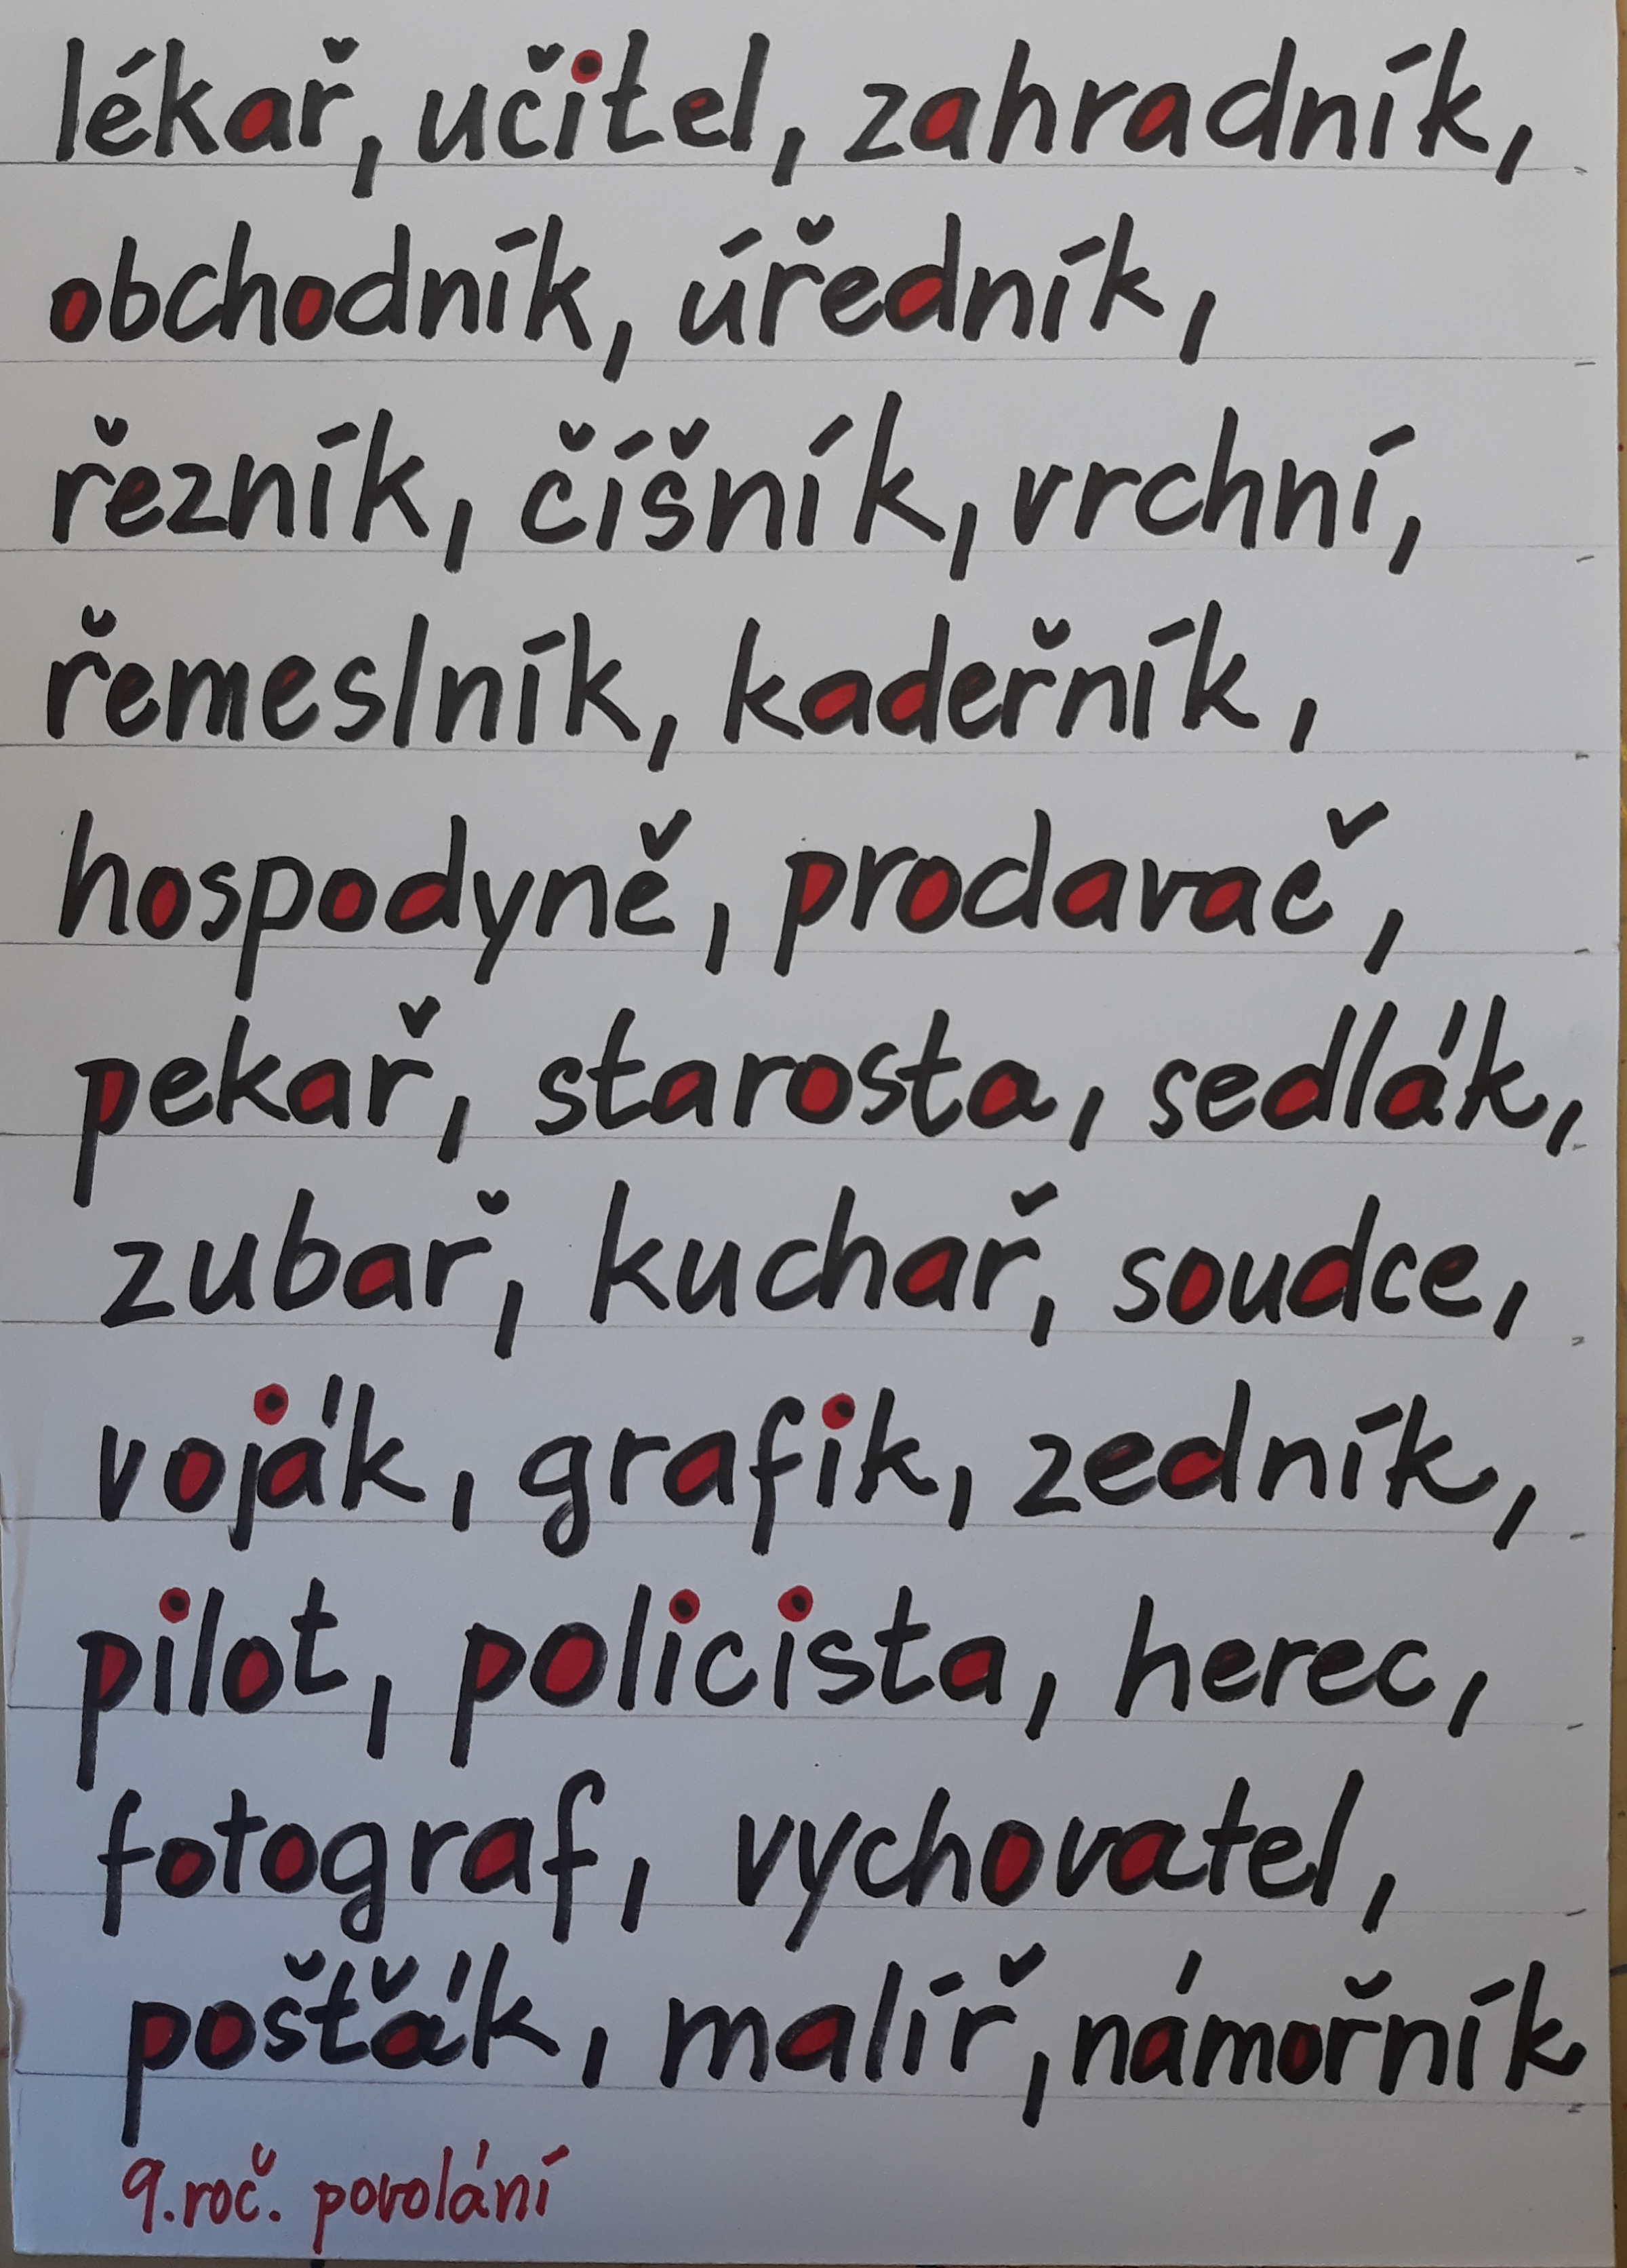 lékař, učitel, zahradník,
obchodník, úředník,
řezník, číšník, vrchní,
řemeslník, kadeřník,
hospodyně, prodavač,
pekař, starosta, sedlák,
zubař, kuchař, soudce,
voják, grafik, zedník,
pilot, policista, herec,
fotograf, vychovatel,
pošťák, malíř, námořník
9. roč. povolání